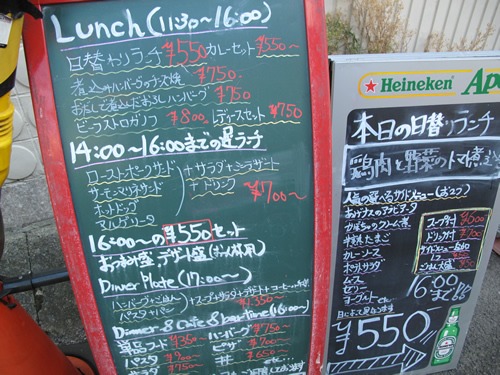 Lunch (11:30〜16:00)
日替わりランチ ¥550 カレーセット ¥550〜
煮込みハンバーグのチーズ焼 ¥750
おだしで煮込んだおろしハンバーグ ¥750
ビーフストロガノフ ¥800 レディースセット ¥750
14:00〜16:00までの遅ランチ
ローストポークサンド
サーモンマリネサンド
ホットドッグ
マルゲリータ
+サラダ+ミニデザート
+ドリンク
¥700〜
16:00〜の¥550セット
おつまみ盛、デザート盛
Dinner Plate (17:00〜)
ハンバーグ+ごはん
パスタ+パン
+スープ+サラダ+デザート+コーヒー
¥1,350〜
Dinner & Cafe & bar time (16:00〜)
単品フード ¥350〜 ハンバーグ ¥750〜
パスタ ¥900〜 ピザ ¥700〜
サラダ 丼 ¥650〜
Heineken
本日の日替りランチ
鶏肉と野菜のトマト煮
人気の選べるサイドメニュー
かぼちゃのクリーム煮
特製たまご
カレーソース
ポテトサラダ
ムース
ゼリー
ヨーグルト etc
スープ付 ¥600
ドリンク付 ¥700
サイドメニュー
ごはん大盛
16:00まで
¥550